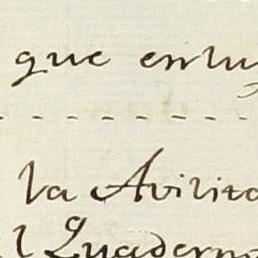 que enlu
la Avilita
l Quaderno